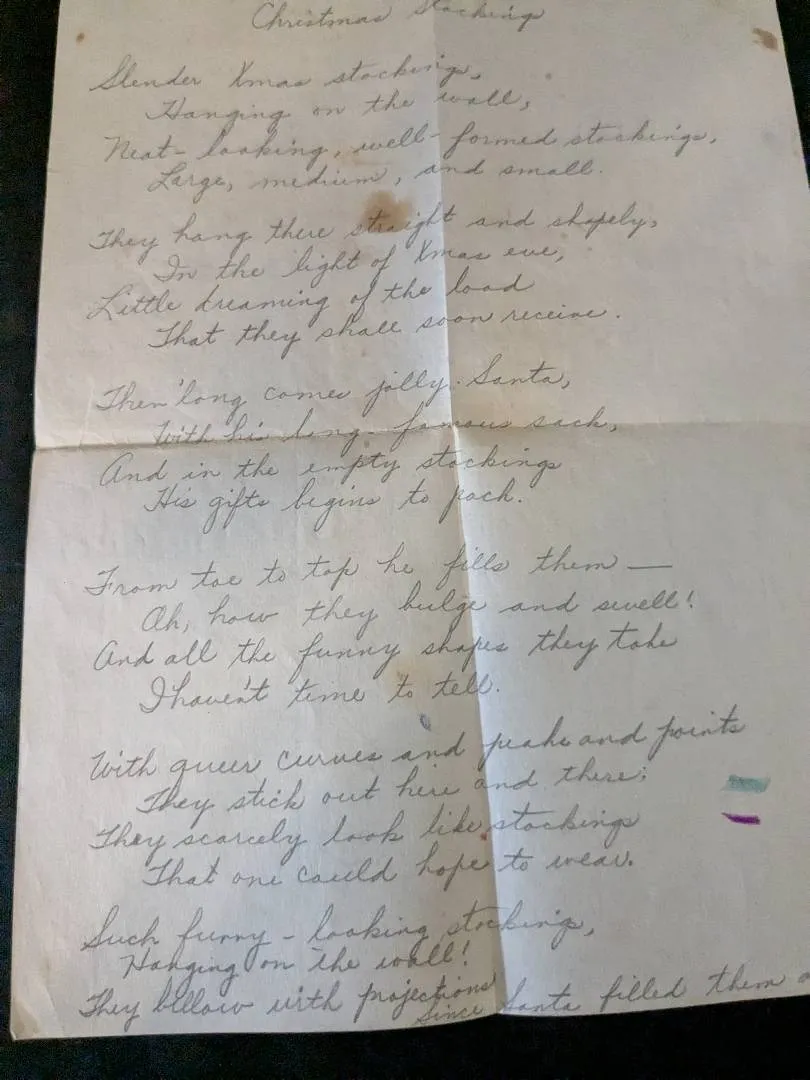 Christmas Stocking
Slender Xmas stockings,
Hanging on the wall,
Neat-looking, well-formed stockings,
Large, medium, and small.
They hang there straight and shapely,
In the light of Xmas eve,
Little dreaming of the load
That they shall soon receive.
Then 'long comes jolly Santa,
With his long-famous sack,
And in the empty stockings
His gifts begins to pack.
From toe to top he fills them —
Oh, how they bulge and swell!
And all the funny shapes they take
I haven't time to tell.
With queer curves and peaks and points
They stick out here and there;
They scarcely look like stockings
That one could hope to wear.
Such funny-looking stockings,
Hanging on the wall!
They billow with projections
Since Santa filled them